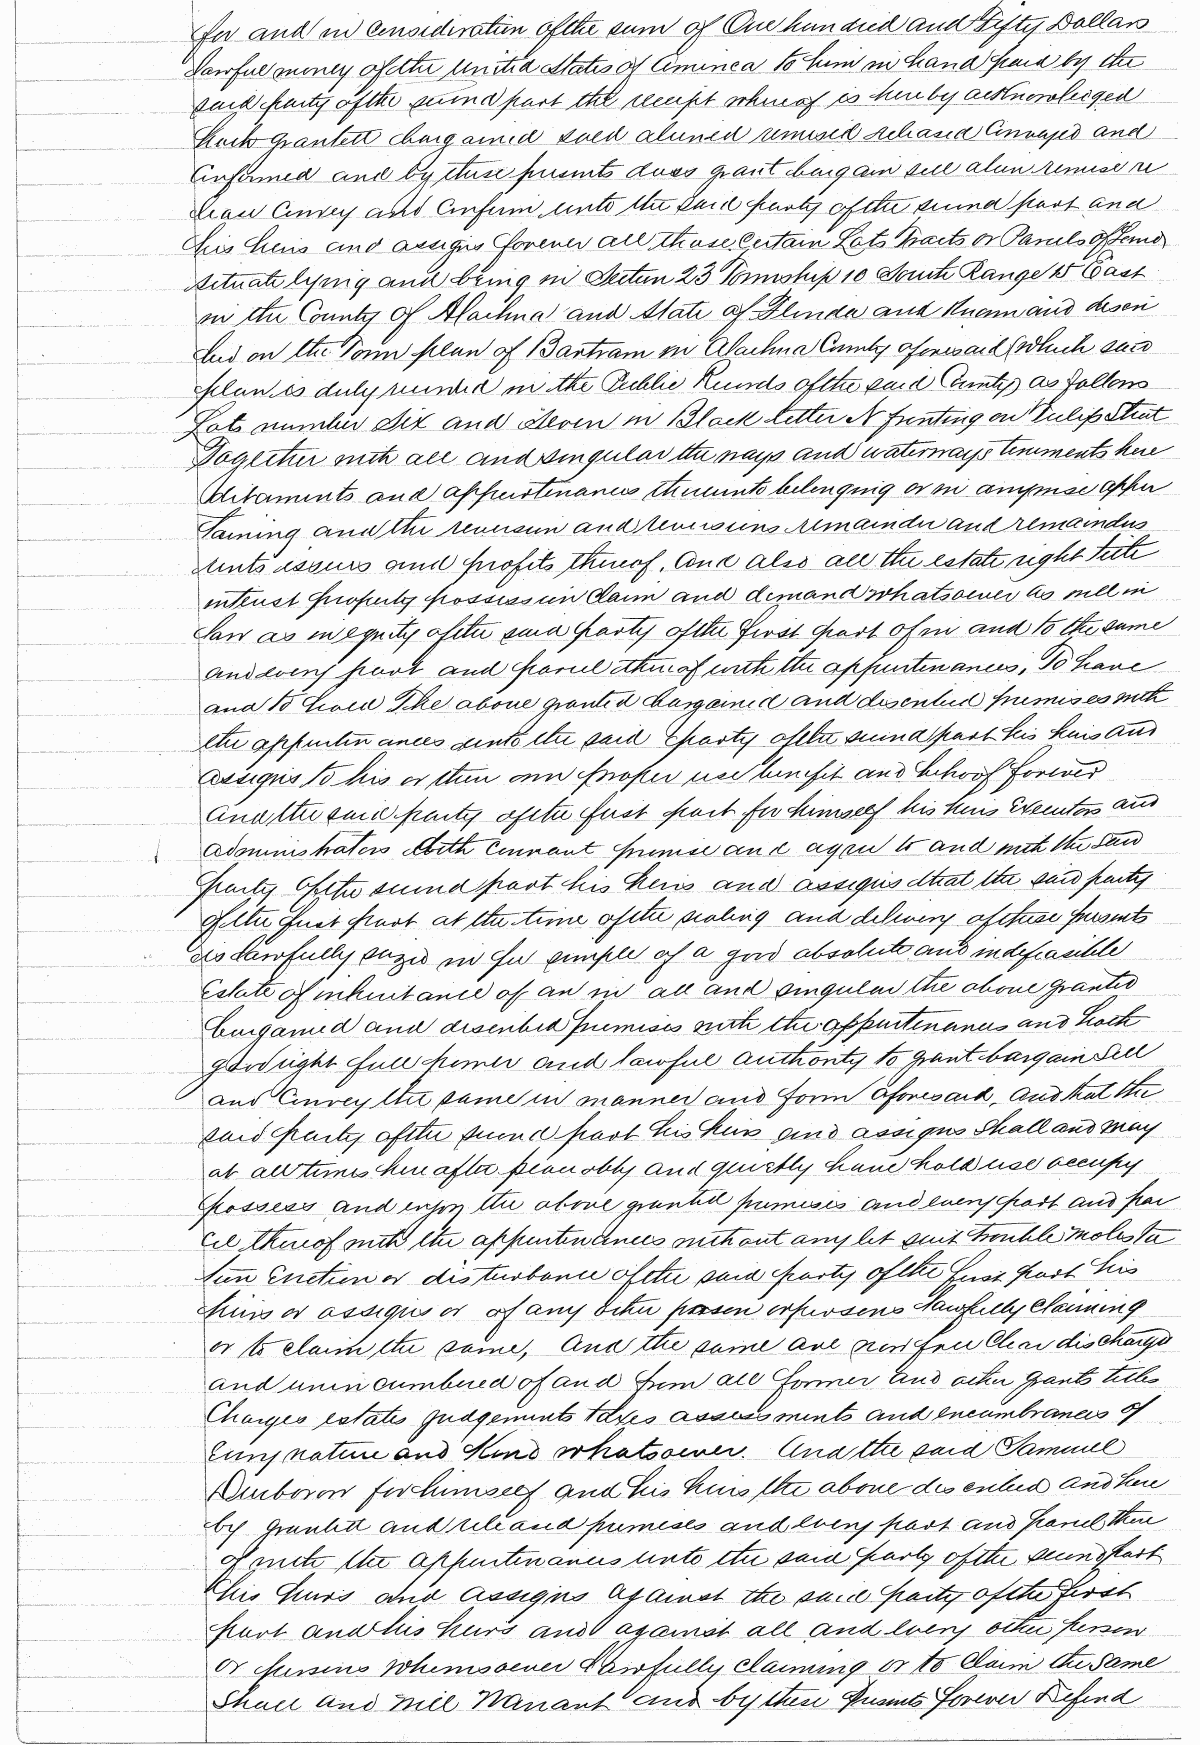 for and in consideration of the sum of One hundred and Fifty Dollars
Lawful money of the United States of America to him in hand paid by the
said party of the second part the receipt whereof is hereby acknowledged
Hath granted bargained sold aliened remised released Conveyed and
Confirmed and by these presents does grant bargain sell alien remise re
lease Convey and Confirm unto the said party of the second part and
his heirs and assigns forever all those Certain Lots Tracts or Parcels of Land
situate lying and being in Section 23 Township 10 South Range 18 East
in the County of Alachua and State of Florida and Known and descri
bed on the Town plan of Bartram in Alachua County aforesaid (which said
plan is duly recorded in the Public Records of the said County) as follows
Lots number Six and Seven in Block letter N fronting on Tulip Street
Together with all and singular the ways and waterways tenements here
ditaments and appurtenances thereunto belonging or in anywise apper
taining and the reversion and reversions remainder and remainders
rents issues and profits thereof. And also all the estate right title
interest property possession Claim and demand whatsoever as well in
law as in equity of the said party of the first part of in and to the same
and every part and parcel thereof with the appurtenances, To have
and to hold The above granted bargained and described premises with
the appurtenances unto the said party of the second part his heirs and
assigns to his or their own proper use benefit and behoof forever
And the said party of the first part for himself his heirs Executors and
administrators doth covenant promise and agree to and with the said
party of the second part his heirs and assigns that the said party
of the first part at the time of the sealing and delivery of these presents
is lawfully seized in fee simple of a good absolute and indefeasible
Estate of inheritance of an in all and singular the above granted
bargained and described premises with the appurtenances and hath
good right full power and lawful authority to grant bargain Sell
and Convey the same in manner and form aforesaid, and that the
said party of the second part his heirs and assigns Shall and may
at all times hereafter peaceably and quietly have hold use occupy
possess and enjoy the above granted premises and every part and par
cel thereof with the appurtenances without any let suit trouble molesta
tion Eviction or disturbance of the said party of the first part his
heirs or assigns or of any other person or persons lawfully claiming
or to claim the same, And the same are now free Clear discharged
and unincumbered of and from all former and other grants titles
Charges estates judgements taxes assessments and encumbrances of
Every nature and Kind whatsoever. And the said Samuel
for himself and his heirs the above described and here
by granted and released premises and every part and parcel there
of with the appurtenances unto the said party of the second part
his heirs and assigns against the said party of the first
part and his heirs and against all and every other person
or persons whomsoever lawfully claiming or to Claim the same
Shall and will Warrant and by these Presents forever Defend